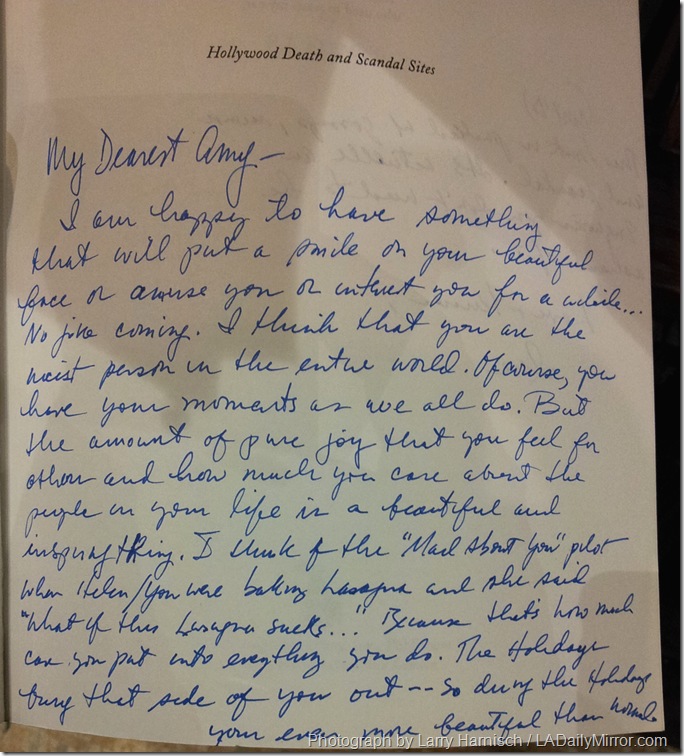 Hollywood Death and Scandal Sites
My Dearest Amy—
I am happy to have something
that will put a smile on your beautiful
face or amuse you or interest you for a while...
No joke coming. I think that you are the
nicest person in the entire world. Of course, you
have your moments as we all do. But
the amount of pure joy that you feel for
others and how much you care about the
people in your life is a beautiful and
inspiring thing. I think of the "Mad About You" pilot
when Helen/you were baking Lasagna and she said
"What if this Lasagna sucks..." Because that's how much
care you put into everything you do. The Holidays
bring that side of you out -- so during the Holidays
your even more beautiful than normal
Photograph by Larry Harnisch / LADailyMirror.com